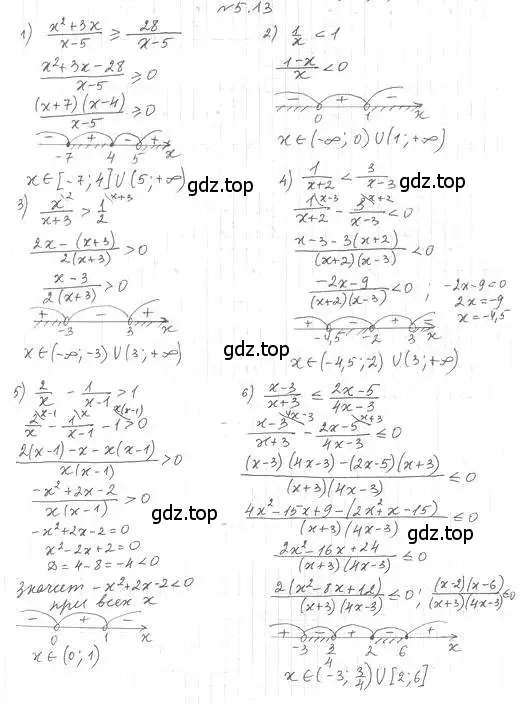 №5.13
1) (x²+3x)/(x-5) ≥ 28/(x-5)
(x²+3x-28)/(x-5) ≥ 0
((x+7)(x-4))/(x-5) ≥ 0
- + - +
-7 4 5 x
x∈[-7; 4]∪(5; +∞)
2) 1/x < 1
(1-x)/x < 0
- + -
0 1 x
x∈(-∞; 0)∪(1; +∞)
gdz.top
3) x/(x+3) > 1/2
(2x-(x+3))/(2(x+3)) > 0
(x-3)/(2(x+3)) > 0
+ - +
-3 3 x
x∈(-∞; -3)∪(3; +∞)
4) 1/(x+2) < 3/(x-3)
1\x-3/(x+2) - 3\x+2/(x-3) < 0
(x-3-3(x+2))/((x+2)(x-3)) < 0
(-2x-9)/((x+2)(x-3)) < 0 ; -2x-9=0
2x=-9
x=-4,5
+ - + -
-4,5 -2 3 x
x∈(-4,5; -2)∪(3; +∞)
gdz.top
gdz.top
5) 2/x - 1/(x-1) > 1
2\x-1/x - 1\x/(x-1) - 1\x(x-1) > 0
(2(x-1)-x-x(x-1))/(x(x-1)) > 0
(-x²+2x-2)/(x(x-1)) > 0
-x²+2x-2=0
x²-2x+2=0
D=4-8=-4<0
значет -x²+2x-2<0
при всех x
- + -
0 1 x
x∈(0; 1)
6) (x-3)/(x+3) ≤ (2x-5)/(4x-3)
x-3\4x-3/(x+3) - 2x-5\x+3/(4x-3) ≤ 0
((x-3)(4x-3)-(2x-5)(x+3))/((x+3)(4x-3)) ≤ 0
(4x²-15x+9-(2x²+x-15))/((x+3)(4x-3)) ≤ 0
(2x²-16x+24)/((x+3)(4x-3)) ≤ 0
(2(x²-8x+12))/((x+3)(4x-3)) ≤ 0 ; ((x-2)(x-6))/((x+3)(4x-3)) ≤ 0
+ - + - +
-3 3/4 2 6 x
x∈(-3; 3/4)∪[2; 6]
gdz.top
gdz.top